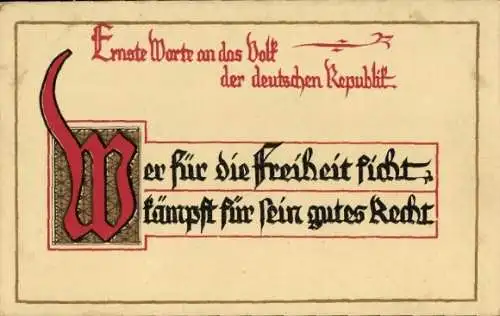 Ernste Worte an das Volk
der deutschen Republik
Wer für die Freiheit ficht,
kämpft für sein gutes Recht